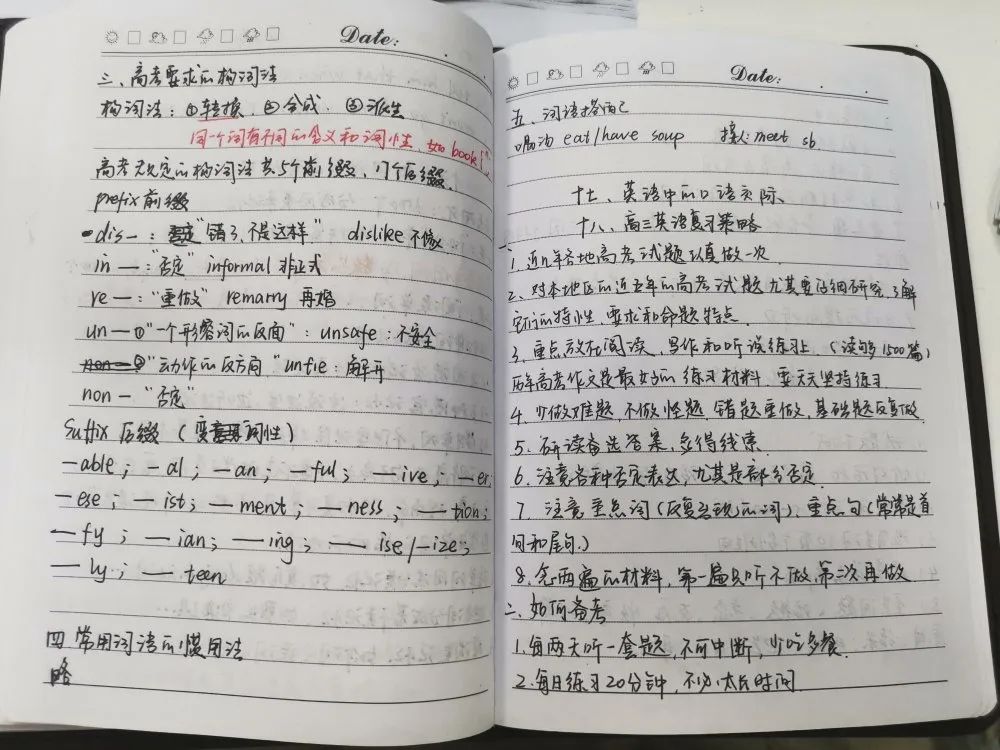 Date:
三、高考要求的构词法
构词法：①转换 ②合成 ③派生
同一个词有不同的含义和词性 如 book
高考规定的构词法共5个前缀，17个后缀、
prefix 前缀
dis—："错了、不是这样" dislike 不
in—："否定" informal 非正式
re—："重做" remarry 再婚
un—①"一个形容词的反向"：unsafe：不安全
②"动作的反方向" untie：解开
non-"否定"
suffix 后缀（变词性）
—able；—al；—an；—ful；—ive；—er；
—ese；—ist；—ment；—ness；—tion；
—fy；—ian；—ing；—ise/-ize；
—ly；—teen
四 常用词语的惯用法
略
Date:
五、词语搭配
喝汤 eat/have soup 接人：meet sb
十七、英语中的口语交际、
十八、高三英语复习策略
1. 近几年各地高考试题认真做一次
2、对本地区的近五年的高考试题尤其要仔细研究，了解
它们的特性、要求和命题特点
3、重点放在阅读、写作和听说练习上、（读够1500篇）
历年高考作文是最好的练习材料，要天天坚持练习
4、少做难题，不做怪题，错题重做，基础题反复做
5、研读备选答案，总得线索
6、注意各种否定表达，尤其是部分否定
7、注意重点词（反复出现的词），重点句（常常是首
句和尾句.）
8. 念两遍的材料，第一遍只听不做，第二次再做
二、如何备考
1. 每两天听一套题，不可中断，少吃多餐.
2. 每日练习20分钟，不必太长时间